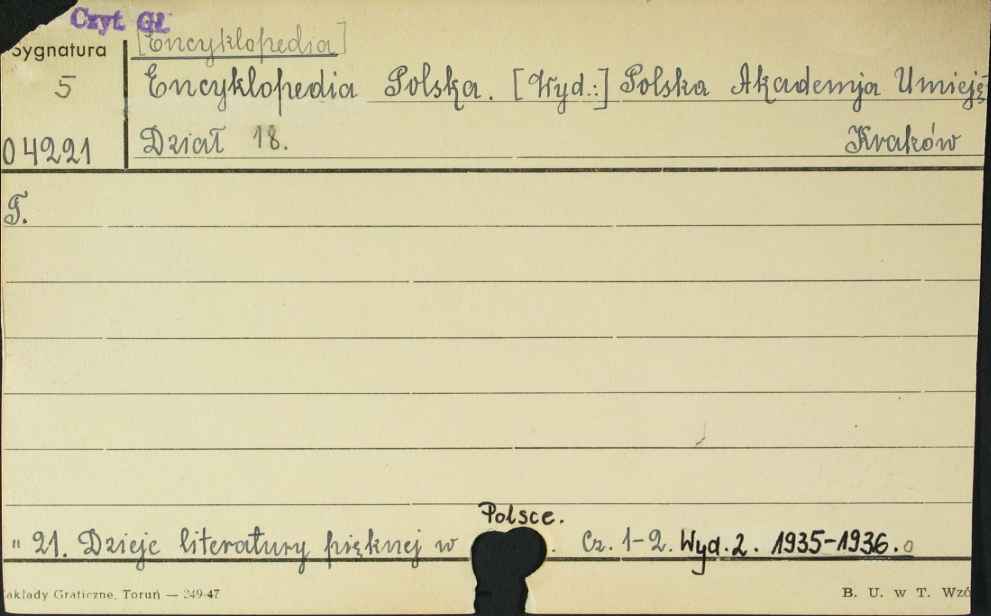 Czyt. Gł.
Sygnatura
[Encyklopedia]
5
Encyklopedia Polska. [Wyd.:] Polska Akademja Umieję
04221
Dział 18. Kraków
T.
Polsce.
" 21. Dzieje literatury pięknej w . Cz. 1-2. Wyd. 2. 1935-1936.
akłady Graficzne, Toruń — 249-47
B. U. w T. Wzó